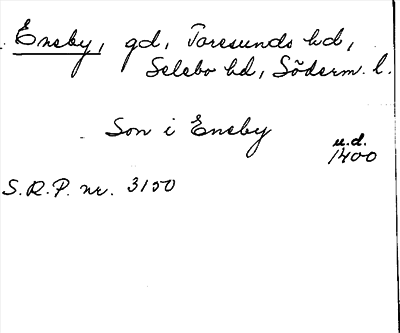 Eneby, gd, Toresunds hd,
Selebo hd, Söderm. l.
Son i Eneby
u.d.
1400
S.R.P. nr. 3150